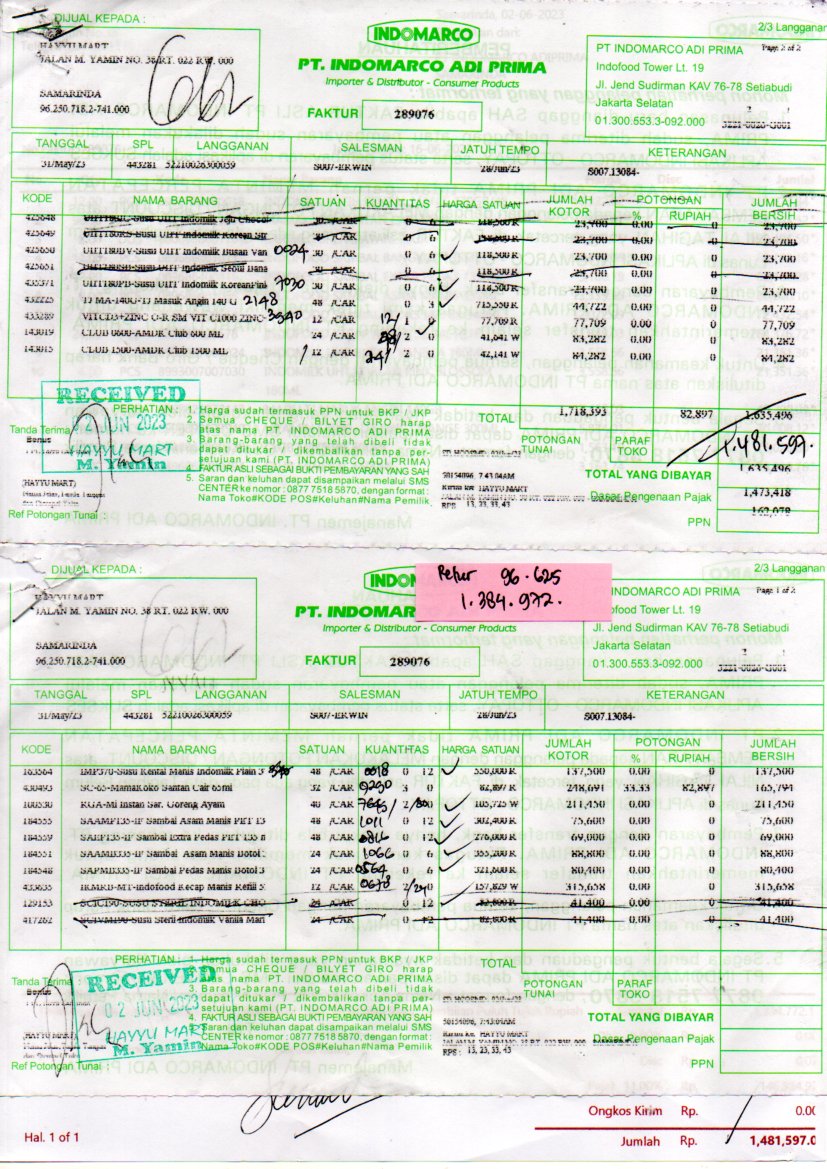 2/3 Langganan
DIJUAL KEPADA :
HAYYU MART
JALAN M. YAMIN NO. 38 RT. 022 RW. 000
SAMARINDA
96.250.718.2-741.000
INDOMARCO
PT. INDOMARCO ADI PRIMA
Importer & Distributor - Consumer Products
FAKTUR 289076
PT INDOMARCO ADI PRIMA Page 2 of 2
Indofood Tower Lt. 19
Jl. Jend. Sudirman KAV 76-78 Setiabudi
Jakarta Selatan
01.300.553.3-092.000
3221-0026-G001
TANGGAL SPL LANGGANAN SALESMAN JATUH TEMPO KETERANGAN
31/May/23 443281 52210026300059 S007-ERWIN 28/Jun/23 S007.13084-
KODE NAMA BARANG SATUAN KUANTITAS HARGA SATUAN JUMLAH KOTOR POTONGAN % RUPIAH JUMLAH BERSIH
425648 Susu UHT Indomilk 30 /CAR 118,500 R 23,700 0.00 0 23,700
425649 Susu UHT Indomilk Korean Str 30 /CAR 0 6 118,500 R 23,700 0.00 0 23,700
425650 UHT180BV-Susu UHT Indomilk Busan Van 0024 30 /CAR 0 6 118,500 R 23,700 0.00 0 23,700
425651 Susu UHT Indomilk Seoul Bana 30 /CAR 0 6 118,500 R 23,700 0.00 0 23,700
435371 UHT180PB-Susu UHT Indomilk KoreanPink 7020 30 /CAR 0 6 118,500 R 23,700 0.00 0 23,700
432225 TJ MA-140G-TJ Masuk Angin 140 G 2148 48 /CAR 0 3 715,550 R 44,722 0.00 0 44,722
433289 VITCD3+ZINC O-R SM VIT C1000 ZINC 3940 12 /CAR 12/1 0 77,709 R 77,709 0.00 0 77,709
143019 CLUB 0600-AMDK Club 600 ML 24 /CAR 2 0 41,641 W 83,282 0.00 0 83,282
143015 CLUB 1500-AMDK Club 1500 ML 12 /CAR 24/ 2 0 42,141 W 84,282 0.00 0 84,282
RECEIVED
02 JUN 2023
HAYYU MART
M. Yamin
Tanda Terima
Bonus
(HAYYU MART)
Ref Potongan Tunai
PERHATIAN : 1. Harga sudah termasuk PPN untuk BKP / JKP
2. Semua CHEQUE / BILYET GIRO harap atas nama PT. INDOMARCO ADI PRIMA
3. Barang-barang yang telah dibeli tidak dapat ditukar / dikembalikan tanpa persetujuan kami (PT. INDOMARCO ADI PRIMA)
4. FAKTUR ASLI SEBAGAI BUKTI PEMBAYARAN YANG SAH
5. Saran dan keluhan dapat disampaikan melalui SMS CENTER ke nomor : 0877 7518 5870, dengan format : Nama Toko#KODE POS#Keluhan#Nama Pemilik
TOTAL 1,718,393 82,897 1,635,496
POTONGAN TUNAI PARAF TOKO
1.481.597.
TOTAL YANG DIBAYAR 1,635,496
Dasar Pengenaan Pajak 1,473,418
PPN 162,078
50154096, 7:43:04AM
Kirim ke: HAYYU MART
RPS : 13, 23, 33, 43
2/3 Langganan
DIJUAL KEPADA :
HAYYU MART
JALAN M. YAMIN NO. 38 RT. 022 RW. 000
SAMARINDA
96.250.718.2-741.000
Retur 96.625
1.384.972.
INDO
PT. INDOMAR
Importer & Distributor - Consumer Products
FAKTUR 289076
INDOMARCO ADI PRIMA Page 1 of 2
ofood Tower Lt. 19
Jl. Jend Sudirman KAV 76-78 Setiabudi
Jakarta Selatan
01.300.553.3-092.000
3221-0026-G001
TANGGAL SPL LANGGANAN SALESMAN JATUH TEMPO KETERANGAN
31/May/23 443281 52210026300059 S007-ERWIN 28/Jun/23 S007.13084-
KODE NAMA BARANG SATUAN KUANTITAS HARGA SATUAN JUMLAH KOTOR POTONGAN % RUPIAH JUMLAH BERSIH
163564 IMP370-Susu Kental Manis Indomilk Plain 3 48 /CAR 0018 0 12 550,000 R 137,500 0.00 0 137,500
430493 SC-65-MamaKoko Santan Cair 65ml 32 /CAR 0290 0 82,897 R 248,691 33.33 82,897 165,794
100530 RGA-Mi Instan Sar. Goreng Ayam 40 /CAR 7645 2/80 0 105,725 W 211,450 0.00 0 211,450
184555 SAAMP135-IF Sambal Asam Manis PET 13 48 /CAR 1011 0 12 302,400 R 75,600 0.00 0 75,600
184559 Sambal Extra Pedas PET 135 48 /CAR 0 12 276,000 R 69,000 0.00 0 69,000
184551 SAAMB335-IF Sambal Asam Manis Botol 24 /CAR 1066 0 6 355,200 R 88,800 0.00 0 88,800
184548 SAPMB335-IF Sambal Pedas Manis Botol 3 24 /CAR 0564 0 6 321,600 R 80,400 0.00 0 80,400
433635 IKMRB-MT-Indofood Kecap Manis Refill 5 12 /CAR 0678 2/24 0 157,829 W 315,658 0.00 0 315,658
129153 SCIC190-SUSU STERIL INDOMILK CHO 24 /CAR 0 12 82,800 R 41,400 0.00 0 41,400
417262 SCIVM190-Susu Steril Indomilk Vanila Mari 24 /CAR 0 12 82,800 R 41,400 0.00 0 41,400
RECEIVED
02 JUN 2023
HAYYU MART
M. Yamin
Tanda Terima
Bonus
(HAYYU MART)
Ref Potongan Tunai
PERHATIAN : 1. Harga sudah termasuk PPN untuk BKP / JKP
Semua CHEQUE / BILYET GIRO harap atas nama PT. INDOMARCO ADI PRIMA
3. Barang-barang yang telah dibeli tidak dapat ditukar / dikembalikan tanpa persetujuan kami (PT. INDOMARCO ADI PRIMA)
4. FAKTUR ASLI SEBAGAI BUKTI PEMBAYARAN YANG SAH
Saran dan keluhan dapat disampaikan melalui SMS CENTER ke nomor : 0877 7518 5870, dengan format : Nama Toko#KODE POS#Keluhan#Nama Pemilik
TOTAL
POTONGAN TUNAI PARAF TOKO
TOTAL YANG DIBAYAR
Dasar Pengenaan Pajak
PPN
50154096, 7:43:04AM
Kirim ke: HAYYU MART
RPS : 13, 23, 33, 43
Ongkos Kirim Rp. 0.00
Hal. 1 of 1
Jumlah Rp. 1,481,597.0